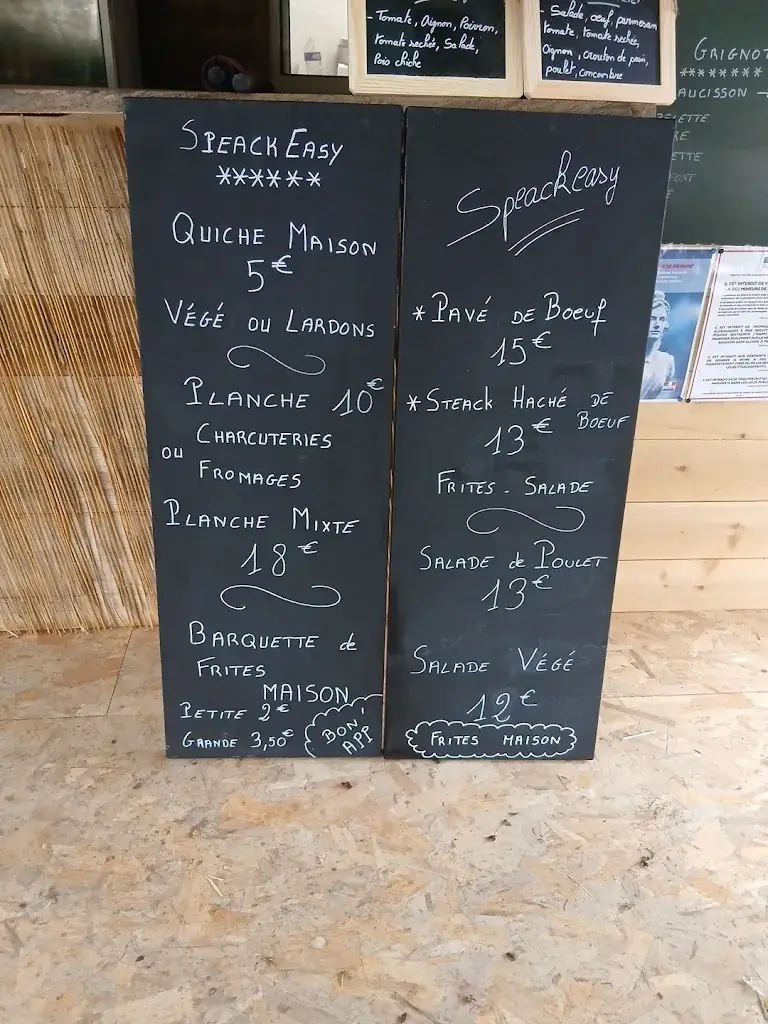 - Tomate, Oignon, Poivron,
tomate sechée, Salade,
Pois chiche
- Salade, oeuf, parmesan
tomate, tomate sechée,
Oignon, crouton de pain,
poulet, concombre
GRIGNOT
********
AUCISSON
SPEACKEASY
******
QUICHE MAISON
5€
VÉGÉ OU LARDONS
PLANCHE 10€
CHARCUTERIES
OU
FROMAGES
PLANCHE MIXTE
18€
BARQUETTE de
FRITES
MAISON
PETITE 2€
GRANDE 3,50€
BON'
APP
Speackeasy
*PAVÉ DE BOEUF
15€
*STEACK HACHÉ DE
BOEUF
13€
FRITES - SALADE
SALADE de POULET
13€
SALADE VÉGÉ
12€
FRITES MAISON